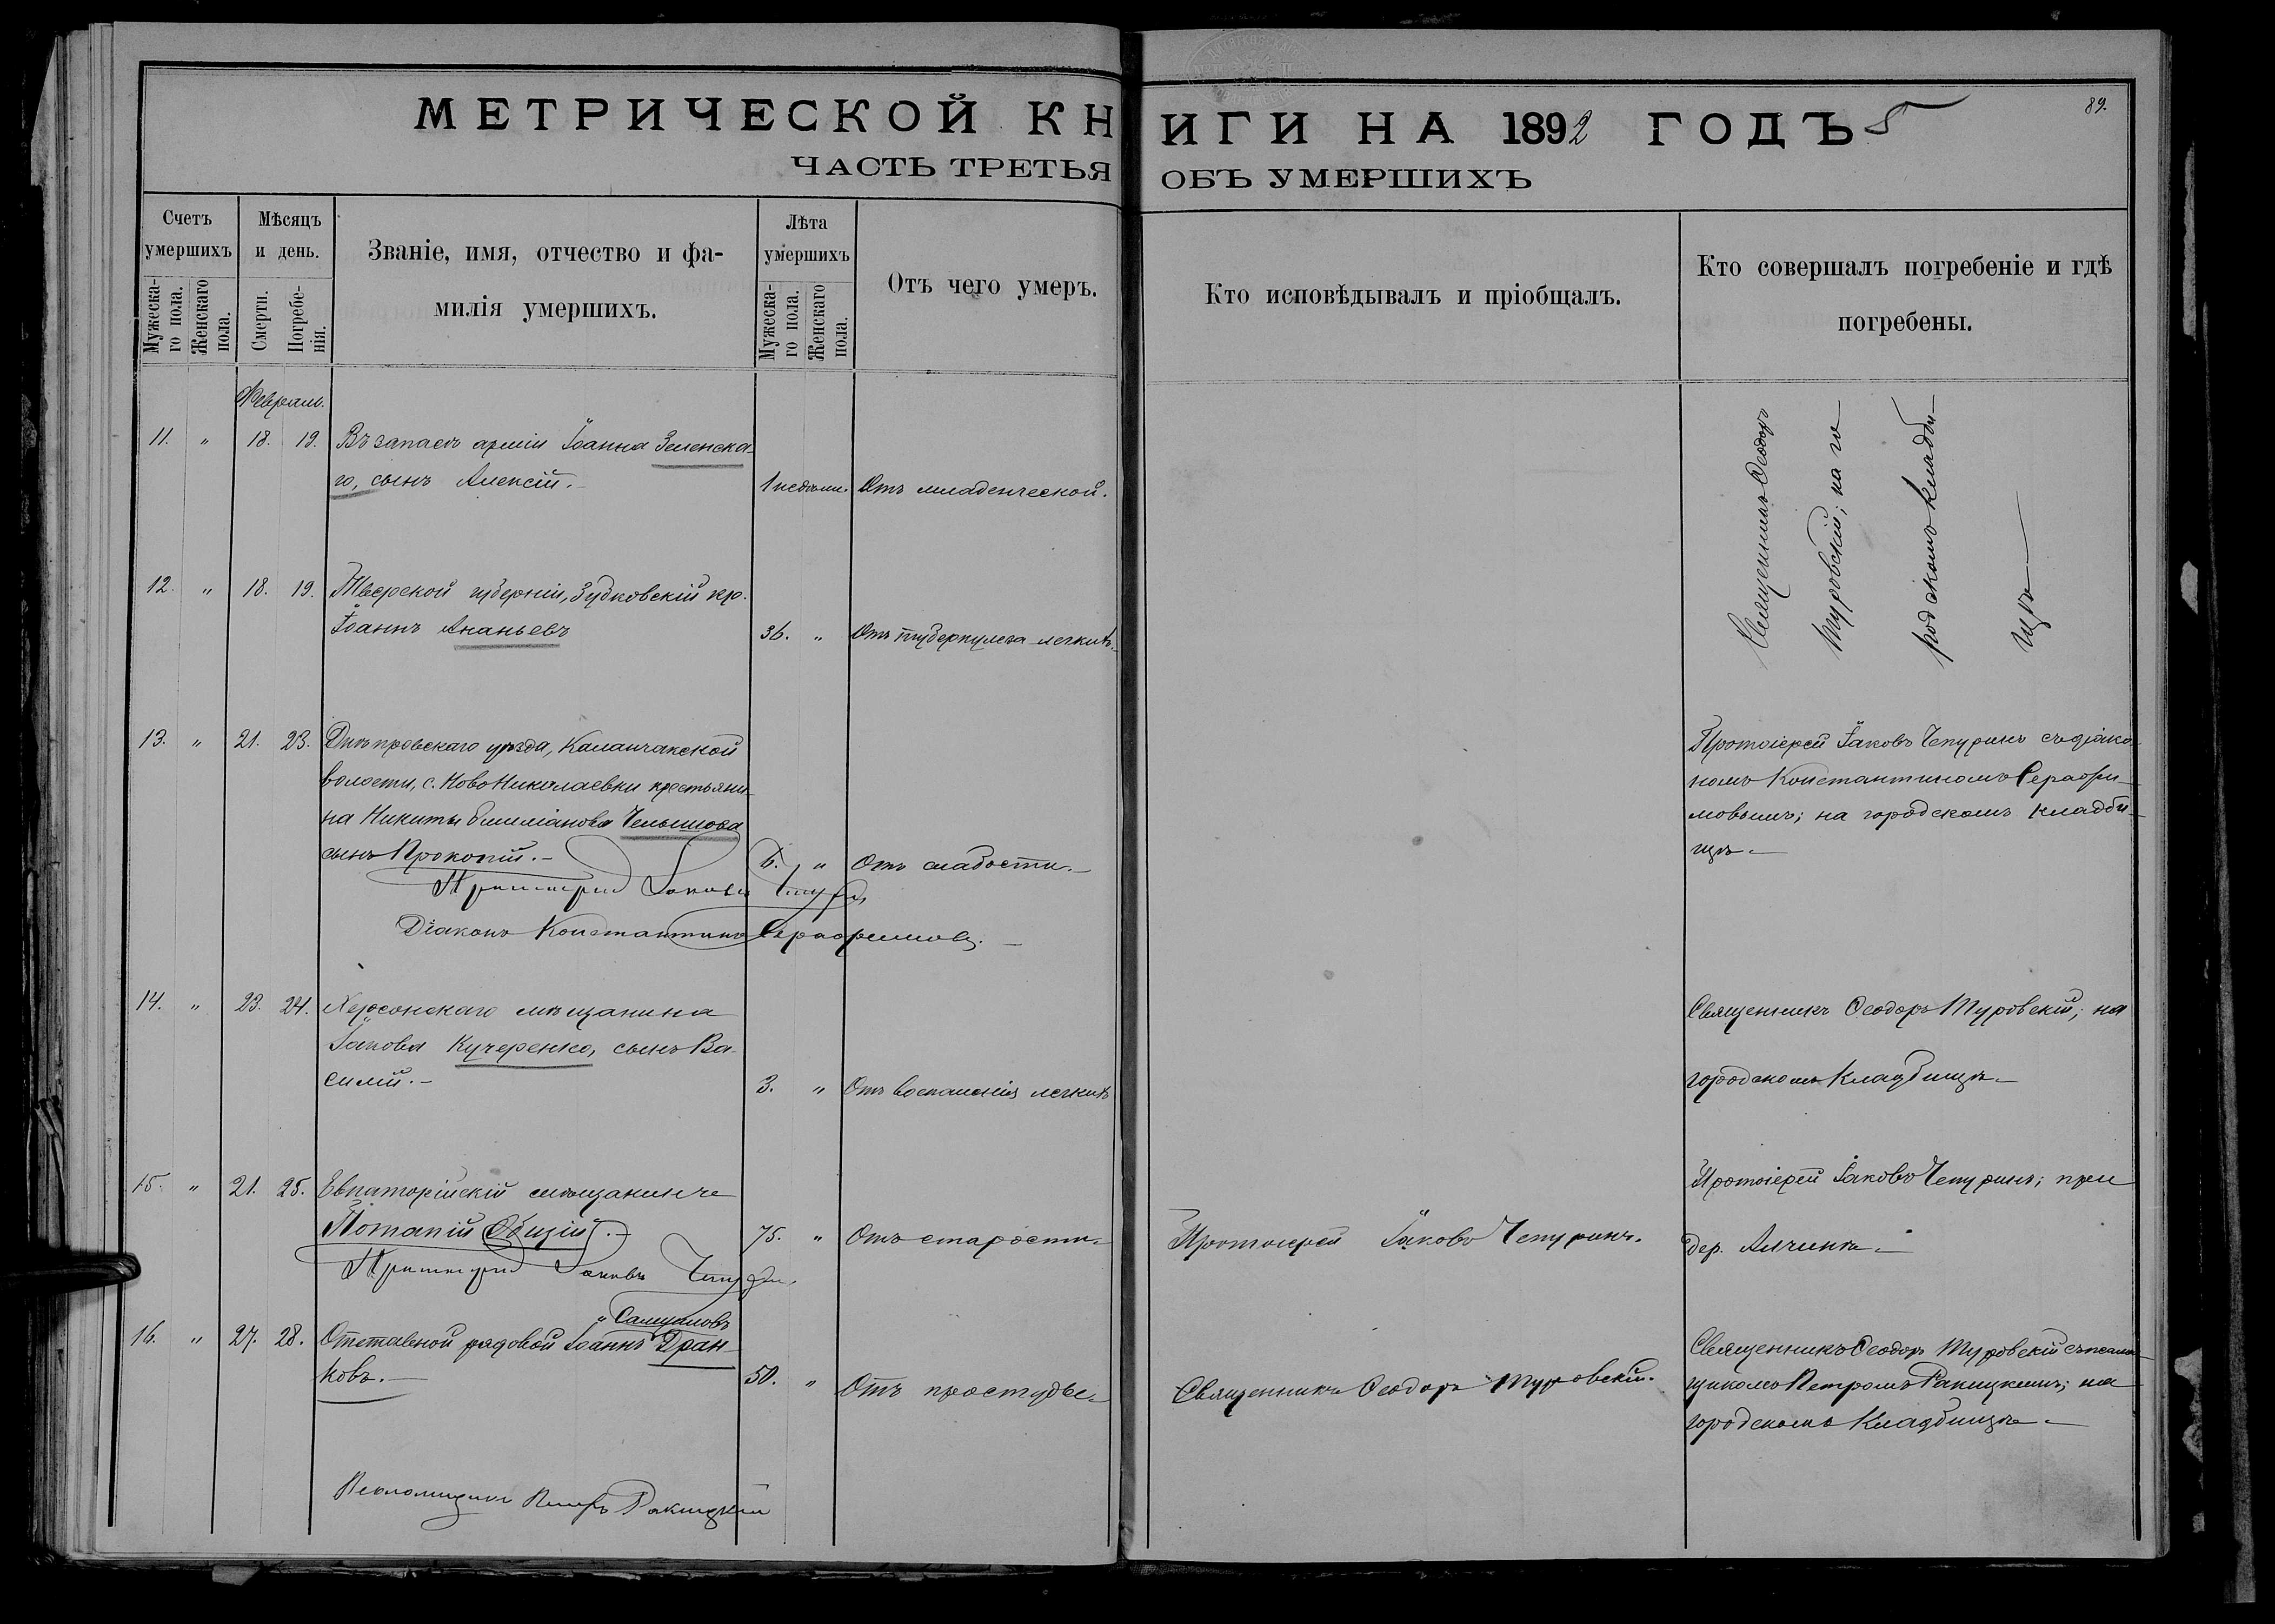 МЕТРИЧЕСКОЙ КНИГИ НА 1892 ГОДЪ 5
89.
ЧАСТЬ ТРЕТЬЯ ОБЪ УМЕРШИХЪ
Счетъ умершихъ
Мужескаго пола.
Женскаго пола.
Мѣсяцъ и день.
Смерти.
Погребенія.
Званіе, имя, отчество и фамилія умершихъ.
Лѣта умершихъ
Мужескаго пола.
Женскаго пола.
Отъ чего умеръ.
Кто исповѣдывалъ и пріобщалъ.
Кто совершалъ погребеніе и гдѣ погребены.
Февраль.
11. " 18. 19. Въ запасѣ арміи Іоанна Зеленска-
го, сынъ Алексій.-
1 недѣли. Отъ младенческой.
Священникъ Ѳеодоръ
Туровскій; на го
родскомъ кладби-
щѣ-
12. " 18. 19. Тверской губерніи, Зубковскій кр.
Іоаннъ Ананьевъ
36. " Отъ туберкулеза легкихъ.-
13. " 21. 23. Днѣпровскаго уѣзда, Каланчакской
волости, с. НовоНиколаевки крестьяни-
на Никиты Емиліанова Челышова
сынъ Прокопій.- 6. " Отъ слабости.-
Протоіерей Іаковъ Чепуринъ съ діако-
номъ Константиномъ Серафи-
мовымъ; на городскомъ кладби-
щѣ.-
Протоіерей Іаковъ Чепуринъ
Діаконъ Константинъ Серафимовъ.-
14. " 23. 24. Херсонскаго мѣщанина
Іакова Кучеренко, сынъ Ва-
силій.- 3. " Отъ воспаленія легкихъ
Священникъ Ѳеодоръ Туровскій; на
городскомъ кладбищѣ.-
15. " 21. 25. Евпаторійскій мѣщанинъ
Потапій Обицій.- 75. " Отъ старости.-
Протоіерей Іаковъ Чепуринъ.
Протоіерей Іаковъ Чепуринъ; при
дер. Алчинѣ.-
Протоіерей Іаковъ Чепуринъ.
Самуиловъ
16. " 27. 28. Отставной рядовой Іоаннъ Дран-
ковъ.- 50. " Отъ простуды.-
Священникъ Ѳеодоръ Туровскій.
Священникъ Ѳеодоръ Туровскій съ псалом-
щикомъ Петромъ Ракицкимъ; на
городскомъ кладбищѣ.-
Псаломщикъ Петръ Ракицкій